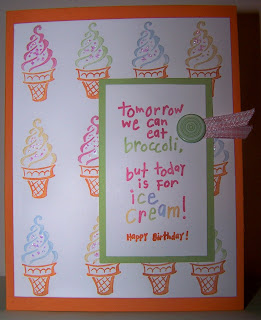 tomorrow
we can
eat
broccoli,
but today
is for
ice
cream!
Happy Birthday!